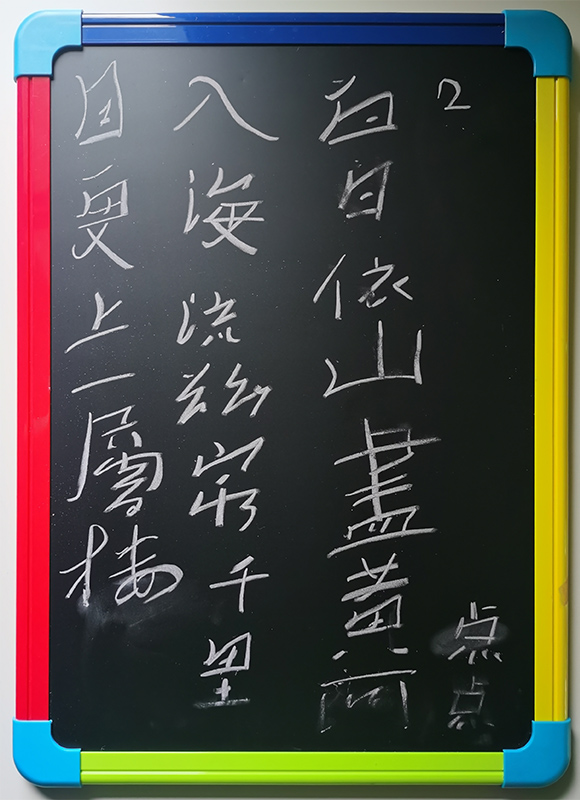 2 点点
白日依山盡黄河
入海流欲穷千里
目更上一層楼